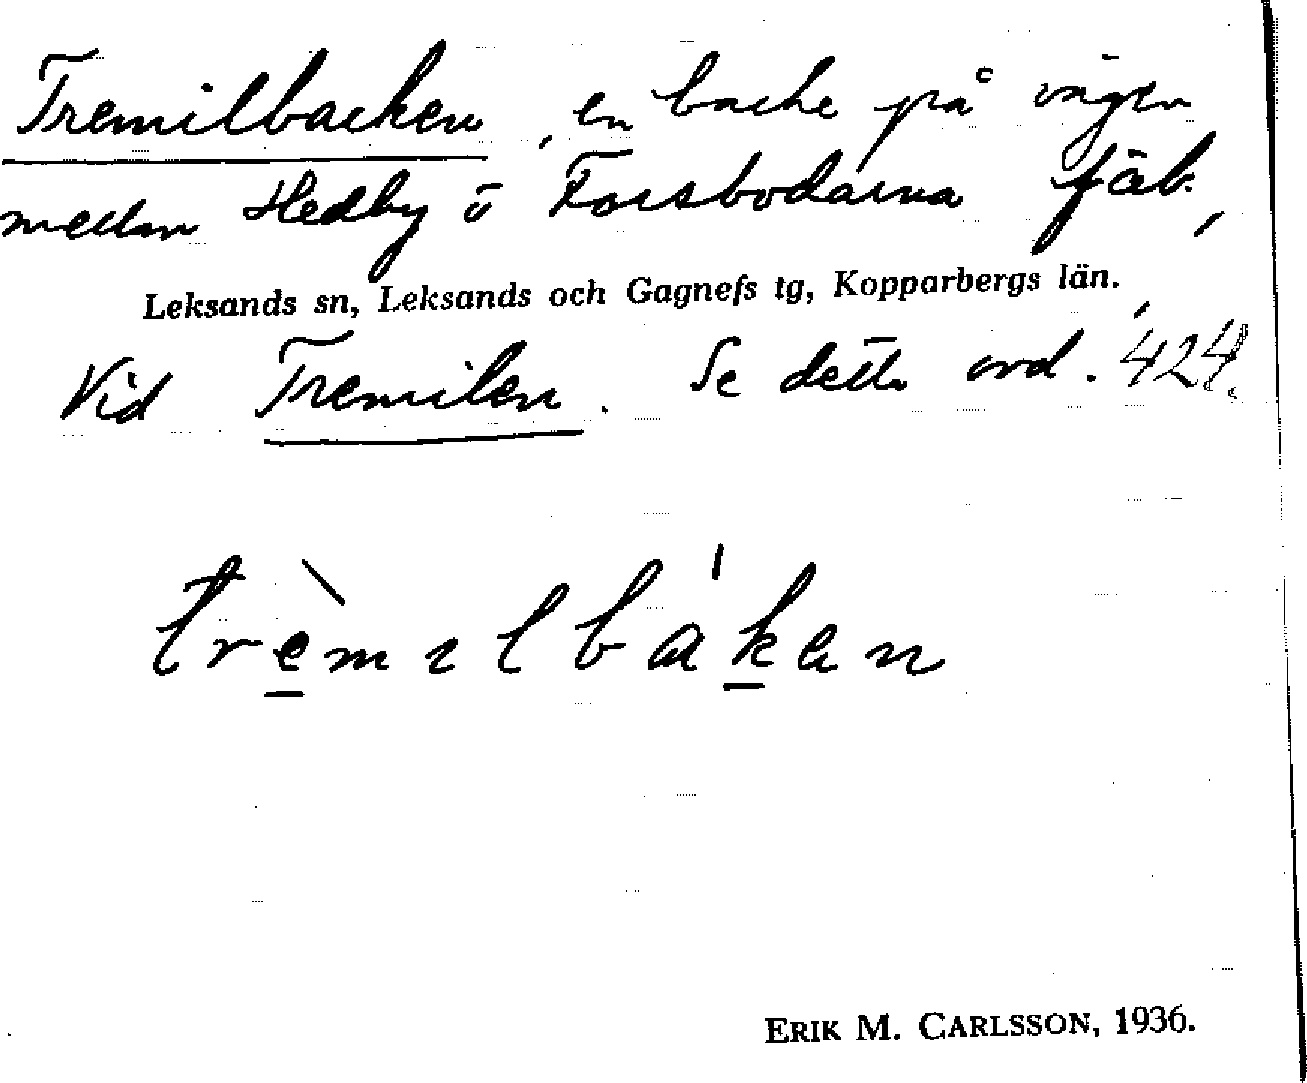 Tremilbacken, en backe på vägen
mellan Hedby o Forsbodarna fäb.,
Leksands sn, Leksands och Gagnefs tg, Kopparbergs län.
Vid Tremilen. Se detta ord. 424.
trèmilbákan
ERIK M. CARLSSON, 1936.